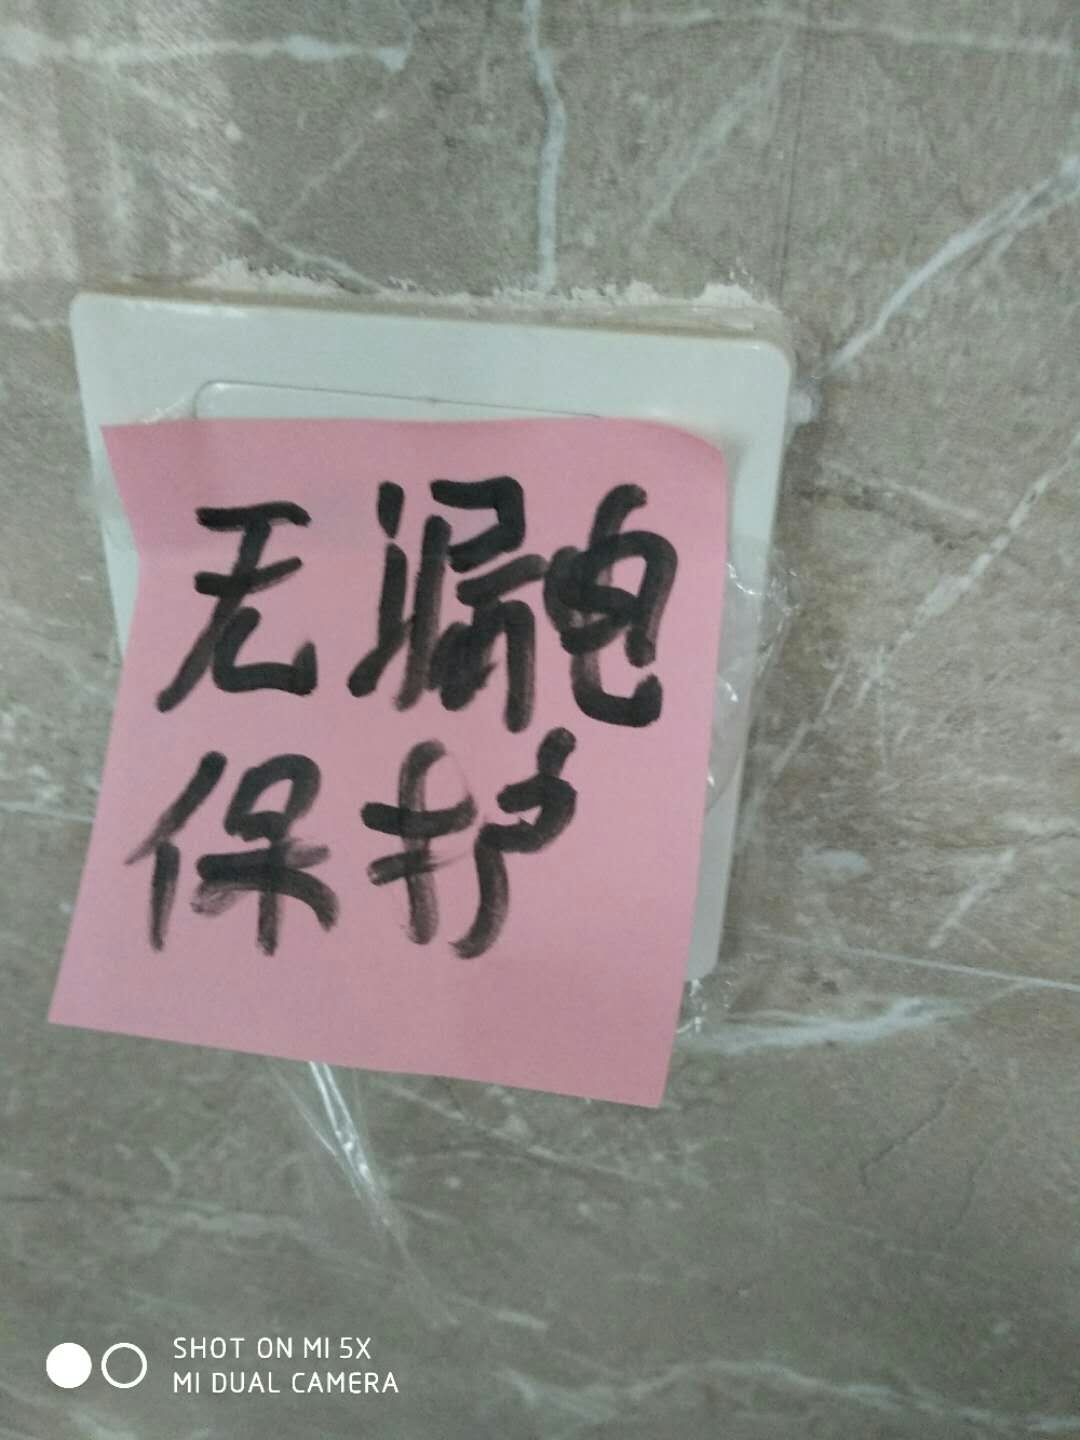 无漏电
保护
SHOT ON MI 5X
MI DUAL CAMERA